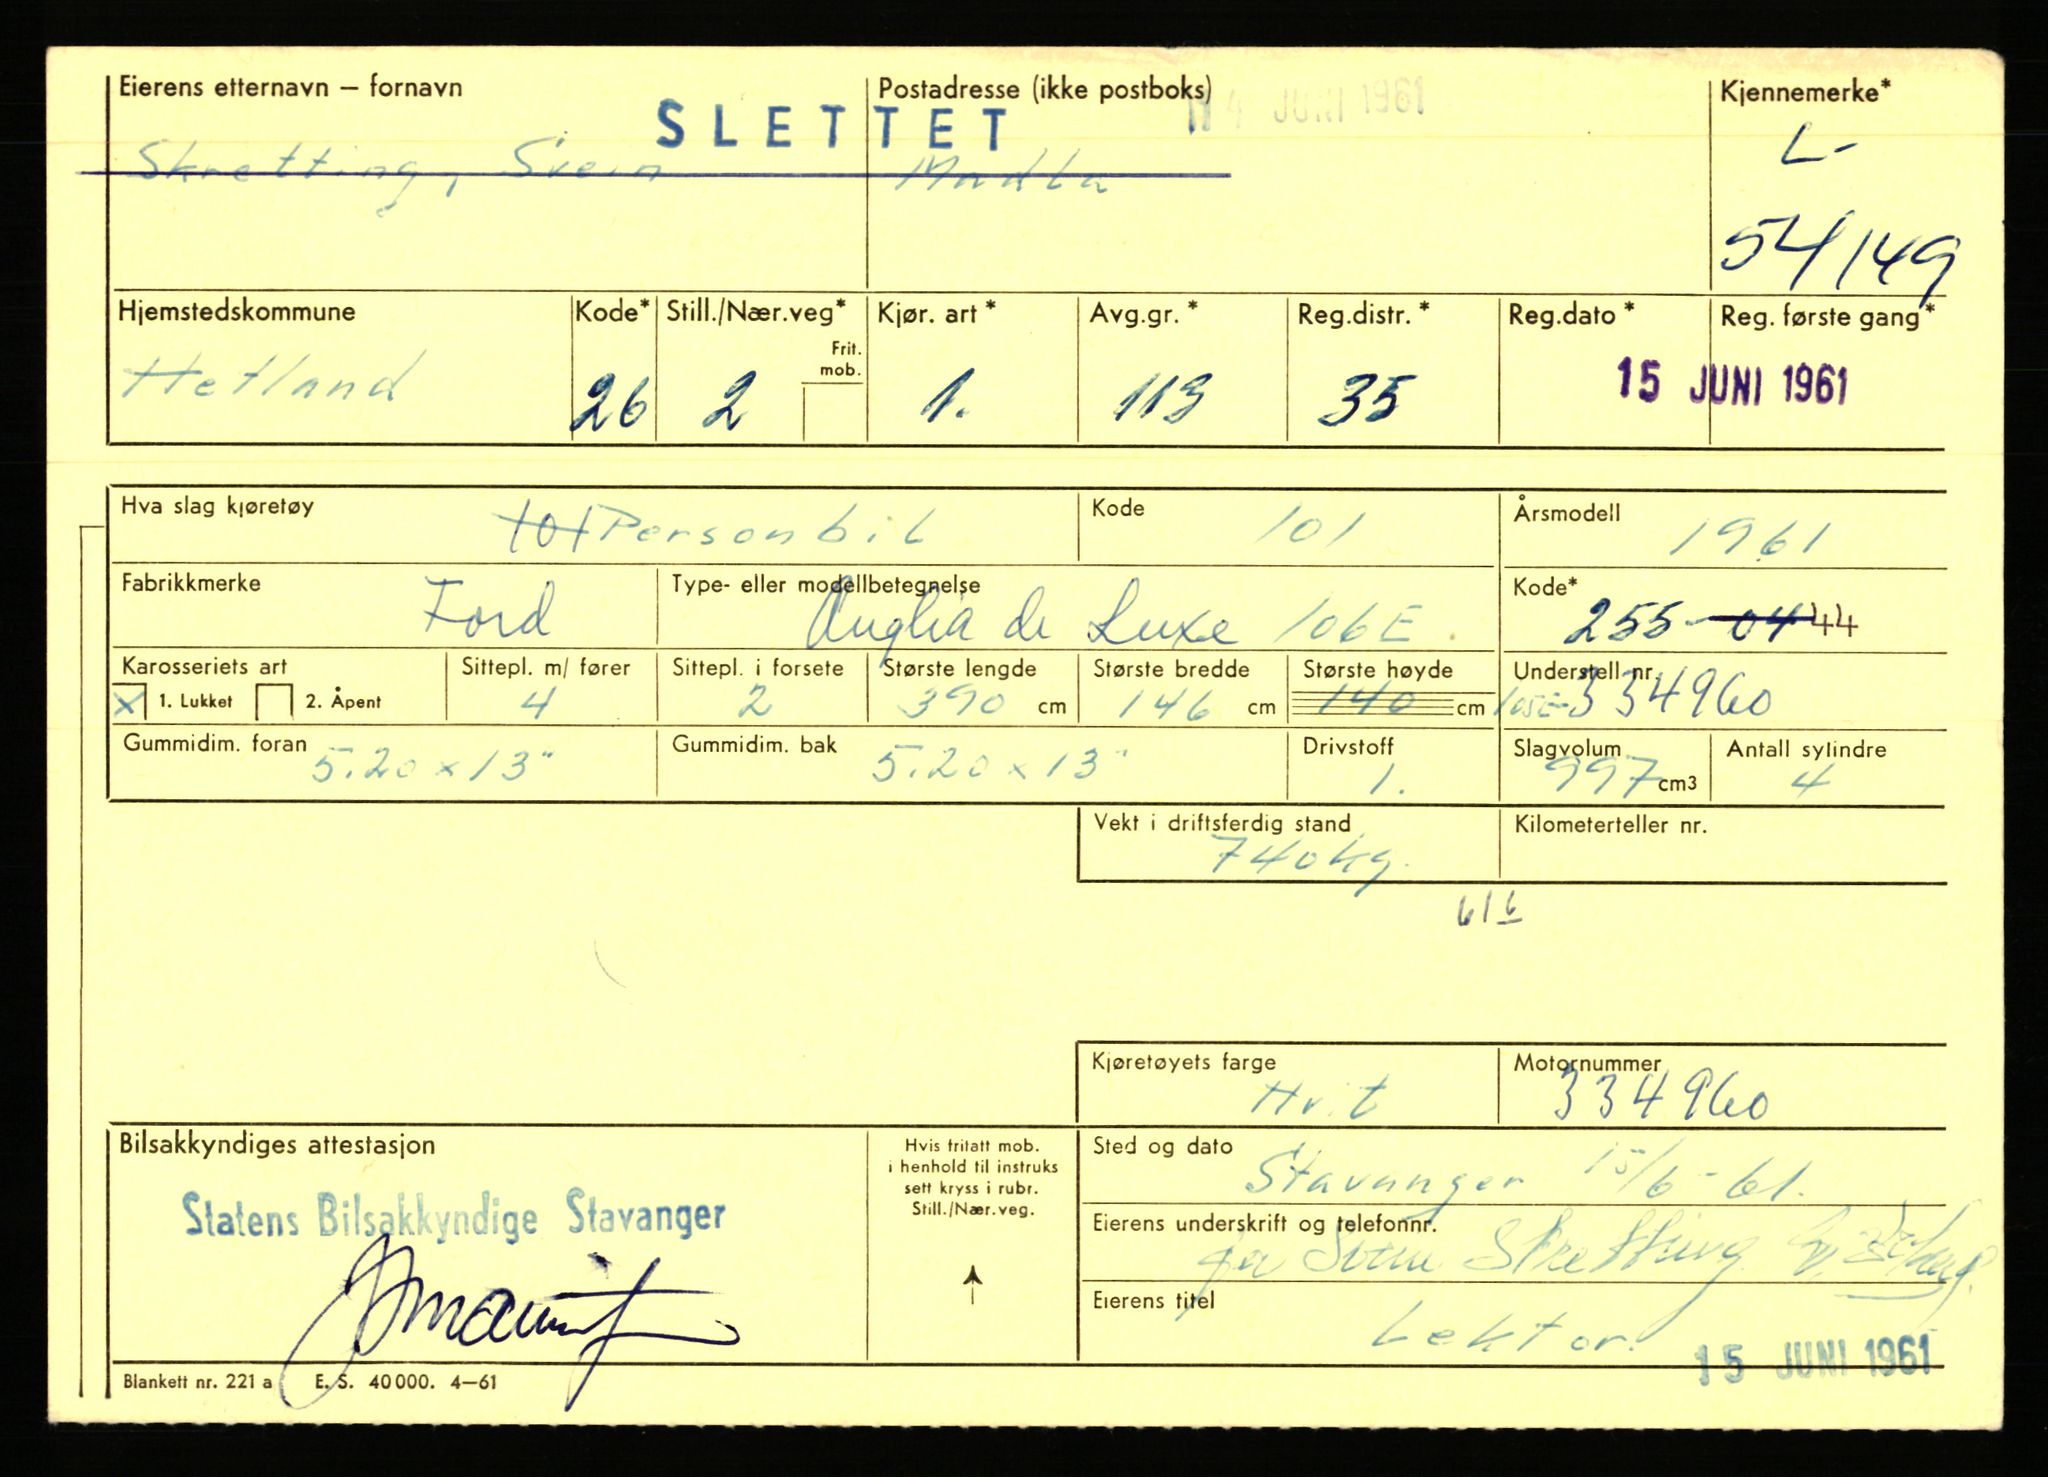 Eierens etternavn – fornavn Postadresse (ikke postboks) 14 JUNI 1961 Kjennemerke*
SLETTET
Skretting, Svein Madla L-
54149
Hjemstedskommune Kode* Still./Nær.veg* Kjør. art* Avg.gr.* Reg.distr.* Reg.dato* Reg. første gang*
Frit. mob.
Hetland 26 2 1. 113 35 15 JUNI 1961
Hva slag kjøretøy Kode Årsmodell
101 Personbil 101 1961
Fabrikkmerke Type- eller modellbetegnelse Kode*
Ford Anglia de Luxe 106E. 255-04 44
Karosseriets art Sittepl. m/ fører Sittepl. i forsete Største lengde Største bredde Største høyde Understell nr.
x 1. Lukket 2. Åpent 4 2 390 cm 146 cm 140 cm 105E-334960
Gummidim. foran Gummidim. bak Drivstoff Slagvolum Antall sylindre
5.20 x 13" 5.20 x 13" 1. 997 cm3 4
Vekt i driftsferdig stand Kilometerteller nr.
740 kg.
61 6
Kjøretøyets farge Motornummer
Hvit 334960
Bilsakkyndiges attestasjon Hvis fritatt mob. i henhold til instruks sett kryss i rubr. Still./Nær.veg. Sted og dato
Stavanger 15/6-61.
Statens Bilsakkyndige Stavanger
Eierens underskrift og telefonnr.
for Svein Skretting
Eierens titel
Lektor.
15 JUNI 1961
Blankett nr. 221 a E. S. 40 000. 4–61